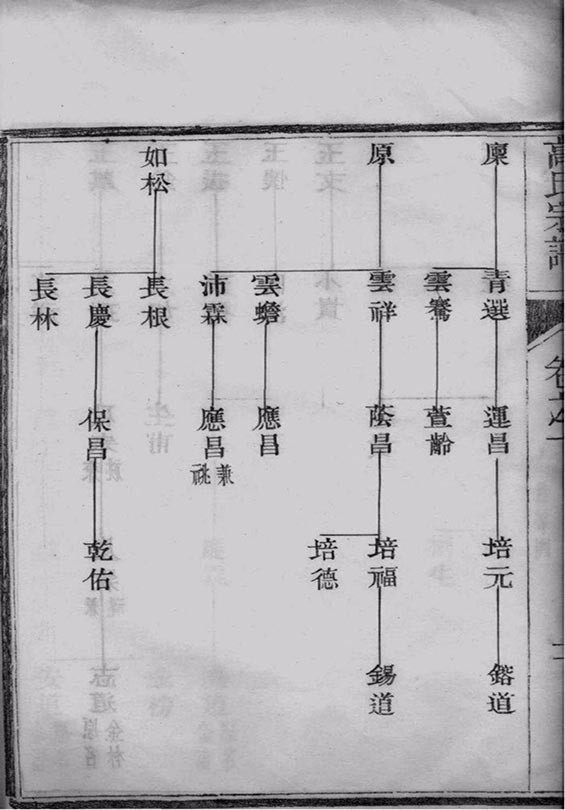 高氏宗譜
廩
原
如松
青選
雲鶱
雲祥
雲蟾
沛霖
長根
長慶
長林
運昌
萱齡
蔭昌
應昌
應昌
兼祧
保昌
培元
培福
培德
乾佑
鍇道
錫道